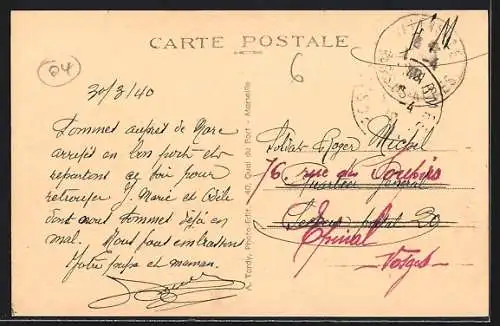 CARTE POSTALE
04
6
30/3/40
Sommes auprès de Marc
arrivés en bon port et
repartons ce soir pour
retrouver J. Marie et Odile
dont nous sommes déjà en
mal. Nous vous embrassons
Votre papa et maman.
A. Tardy, Photo-Edit., 40, Quai du Port - Marseille
Soldat Roger Michel
76 rue des Soupirs
Quartier Général
Secteur postal 30
Epinal
Vosges